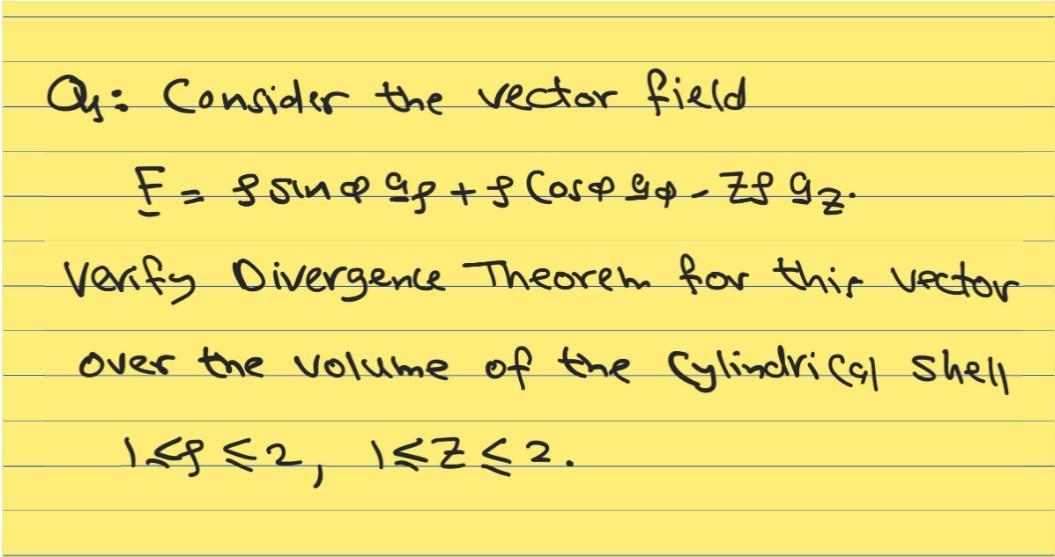 Q: Consider the vector field
F = ρ sinφ aρ + ρ Cosφ aφ - Zρ az.
Verify Divergence Theorem for this vector
over the volume of the Cylindrical Shell
1≤ρ≤2, 1≤Z≤2.